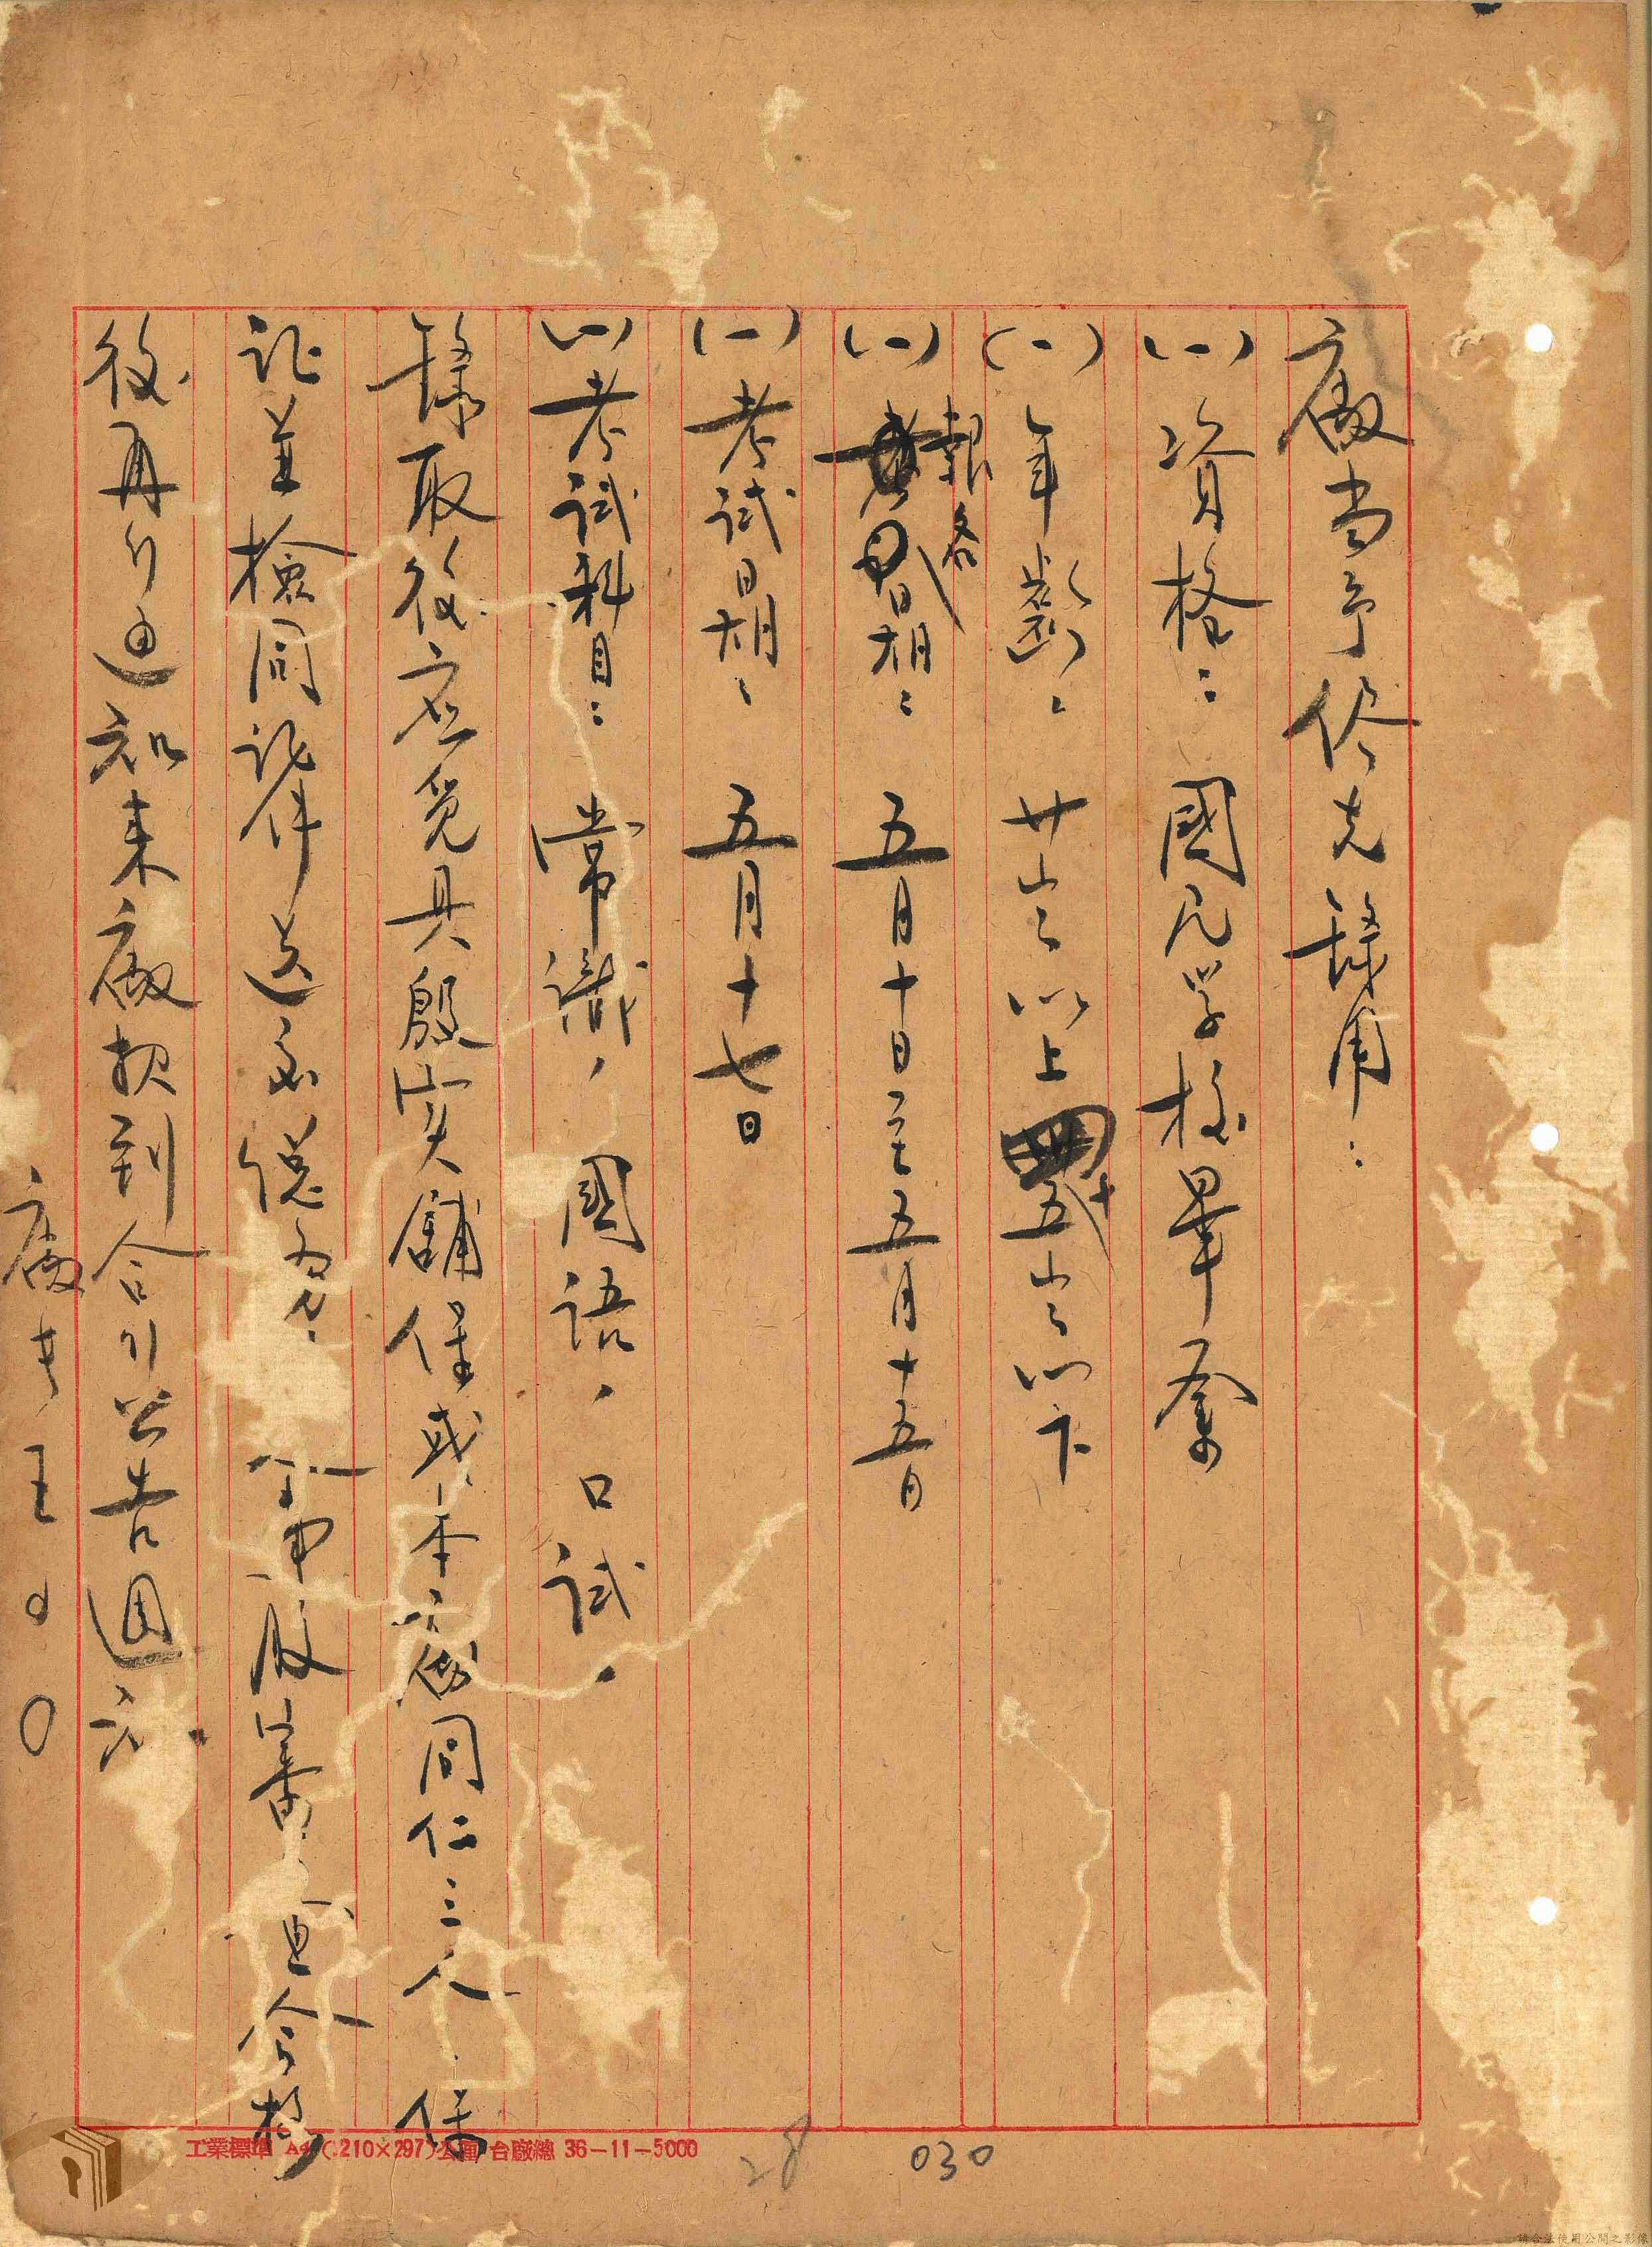 廠當予優先錄用：
(一)資格：國民學校畢業
(一)年齡：廿歲以上五十歲以下
(一)報名日期：五月十日至五月十五日
(一)考試日期：五月十七日
(一)考試科目：常識，國語，口試。
錄取後应覓具殷实舖保或本廠同仁三人保
証並檢同証件送
審查合格
後再行通知來廠報到合行公告週知
廠長王○○
工業標準 A4(210×297)公厘 台廠總 36-11-5000
28
030
請合法使用公開之影像